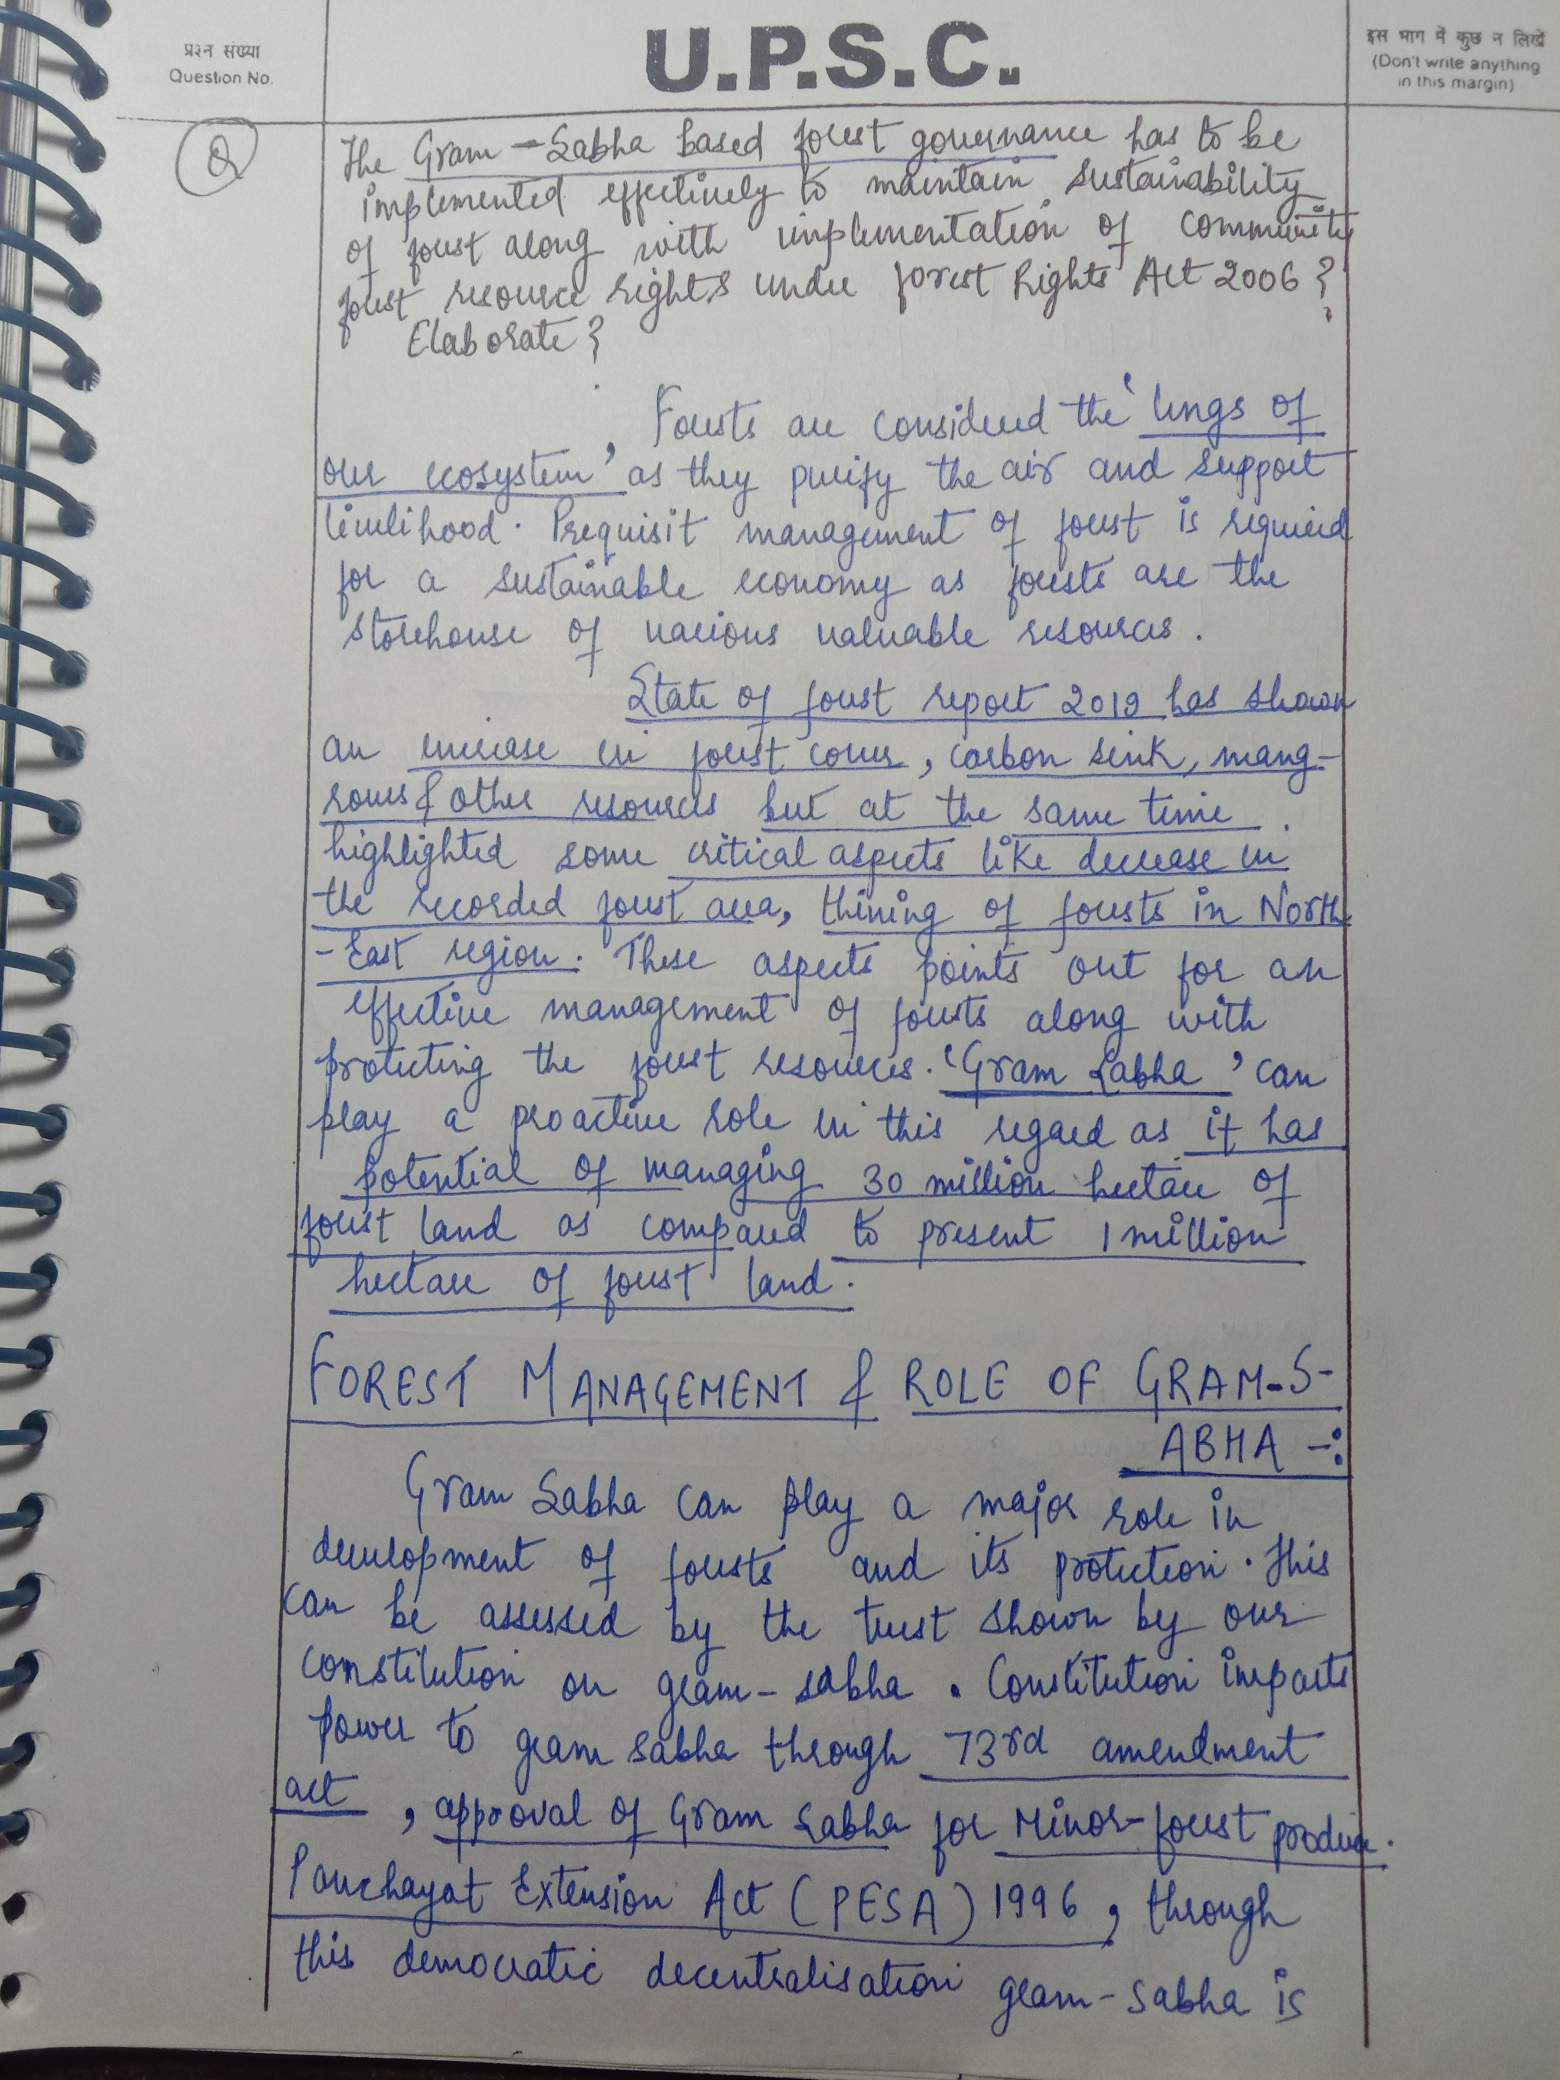 प्रश्न संख्या
Question No.
U.P.S.C.
इस भाग में कुछ न लिखें
(Don't write anything
in this margin)
Q
The Gram-Sabha based forest governance has to be
implemented effectively to maintain sustainability
of forest along with implementation of community
forest resource rights under forest Rights Act 2006?
Elaborate?
Forests are considered the 'lungs of
our ecosystem' as they purify the air and support
livelihood. Prequisit management of forest is required
for a sustainable economy as forests are the
storehouse of various valuable resources.
State of forest report 2019 has shown
an increase in forest cover, carbon sink, mang-
roves & other resources but at the same time
highlighted some critical aspects like decrease in
the recorded forest area, thining of forests in North
-East region. These aspects points out for an
effective management of forests along with
protecting the forest resources. 'Gram Sabha' can
play a proactive role in this regard as it has
potential of managing 30 million hectare of
forest land as compared to present 1 million
hectare of forest land.
FOREST MANAGEMENT & ROLE OF GRAM-S-
ABHA -:
Gram Sabha can play a major role in
development of forests and its protection. This
can be assessed by the trust shown by our
constitution on gram-sabha. Constitution imparts
power to gram sabha through 73rd amendment
act, approval of Gram Sabha for Minor-forest produce.
Panchayat Extension Act (PESA) 1996, through
this democratic decentralisation gram-sabha is